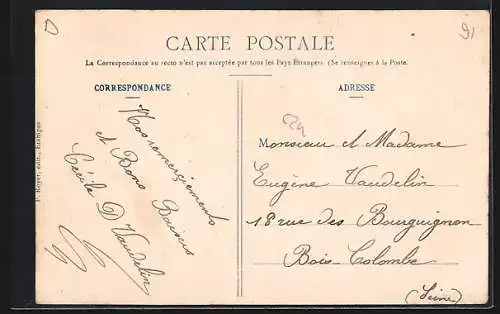 D
91
CARTE POSTALE
La Correspondance au recto n'est pas acceptée par tous les Pays Étrangers. (Se renseigner à la Poste.
CORRESPONDANCE
ADRESSE
Nos remerciements
et Bons Baisers
Cécile D Vaudelin
Monsieur et Madame
Eugène Vaudelin
18 rue des Bourguignon
Bois-Colombe
(Seine)
P. Royer, édit., Étampes